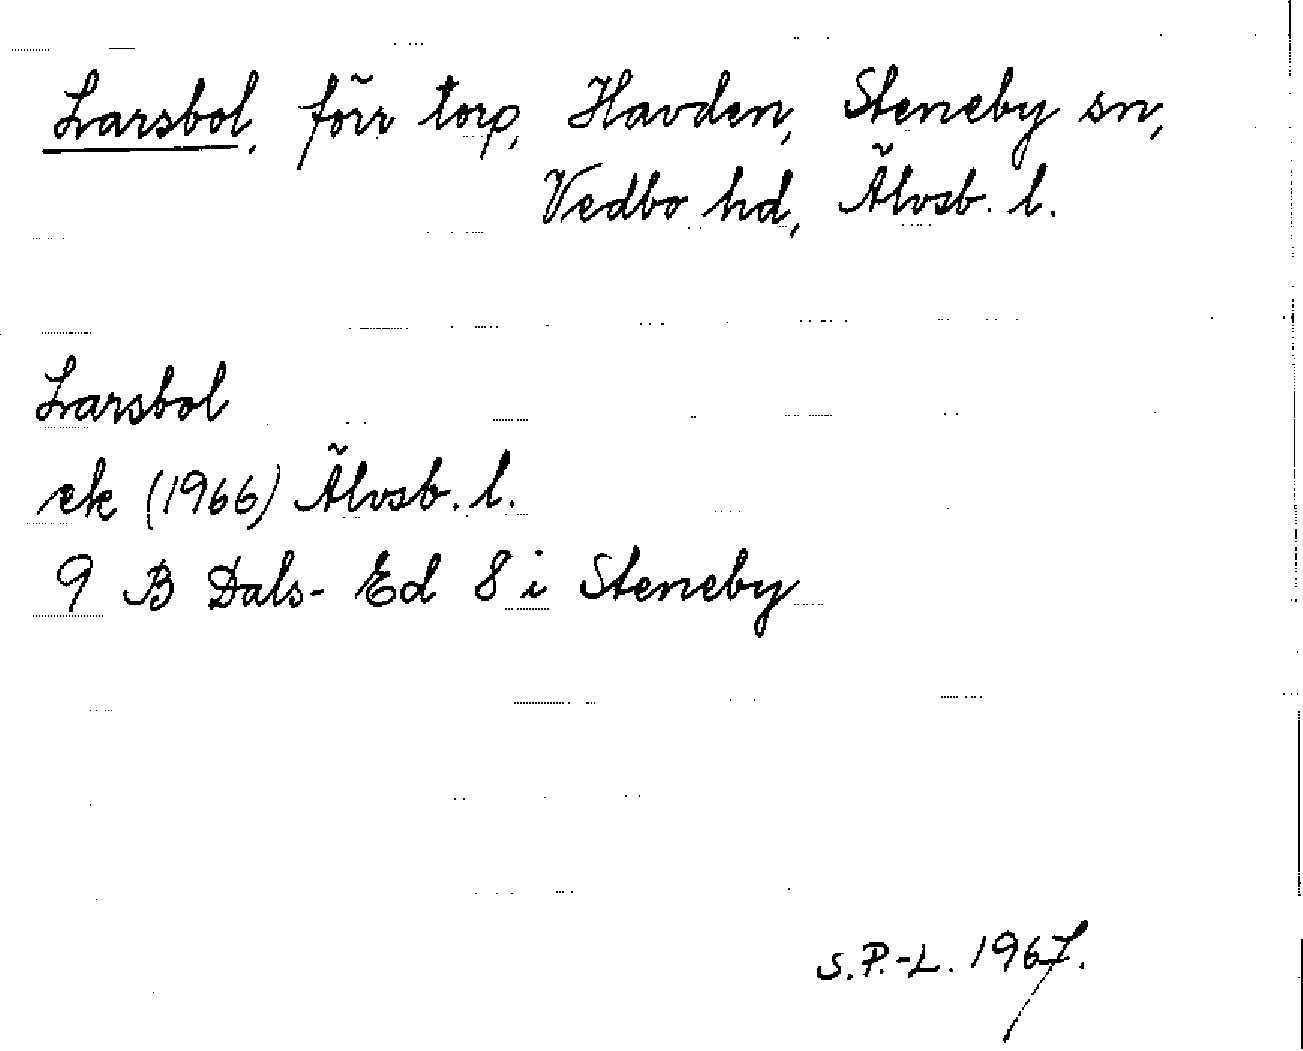 Larsbol, förr torp, Havden, Steneby sn,
Vedbo hd, Älvsb. l.
Larsbol
ek (1966) Älvsb. l.
9 B Dals-Ed 8 i Steneby
S.P.-L. 1967.